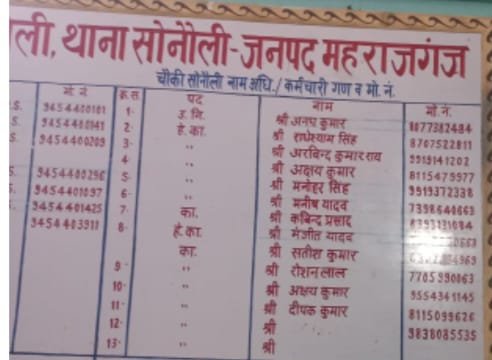 ली, थाना सोनौली-जनपद महराजगंज
चौकी सोनौली नाम अधि./कर्मचारी गण व मो. नं.
मो. नं. क्र.स. पद नाम मो. नं.
S. 9454400101 1- उ. नि. श्री अनघ कुमार 8077382484
S. 9454400141 2- हे. का. श्री राधेश्याम सिंह 8707522811
S. 9454400209 3- " श्री अरविन्द कुमार राय 9919141202
4- " श्री अक्षय कुमार 8115479977
S. 9454400296 5- " श्री मनोहर सिंह 9919372338
S. 9454401097 6- " श्री मनीष यादव 7398640669
S. 9454401425 7- का. श्री कबिन्द्र प्रसाद
9454403911 8- हे. का. श्री मंजीत यादव
का. श्री सतीश कुमार
9- " श्री रोशन लाल 7705990063
10- " श्री अक्षय कुमार 9554361145
11- " श्री दीपक कुमार 8115099626
12- " श्री 9838085535
13- " श्री